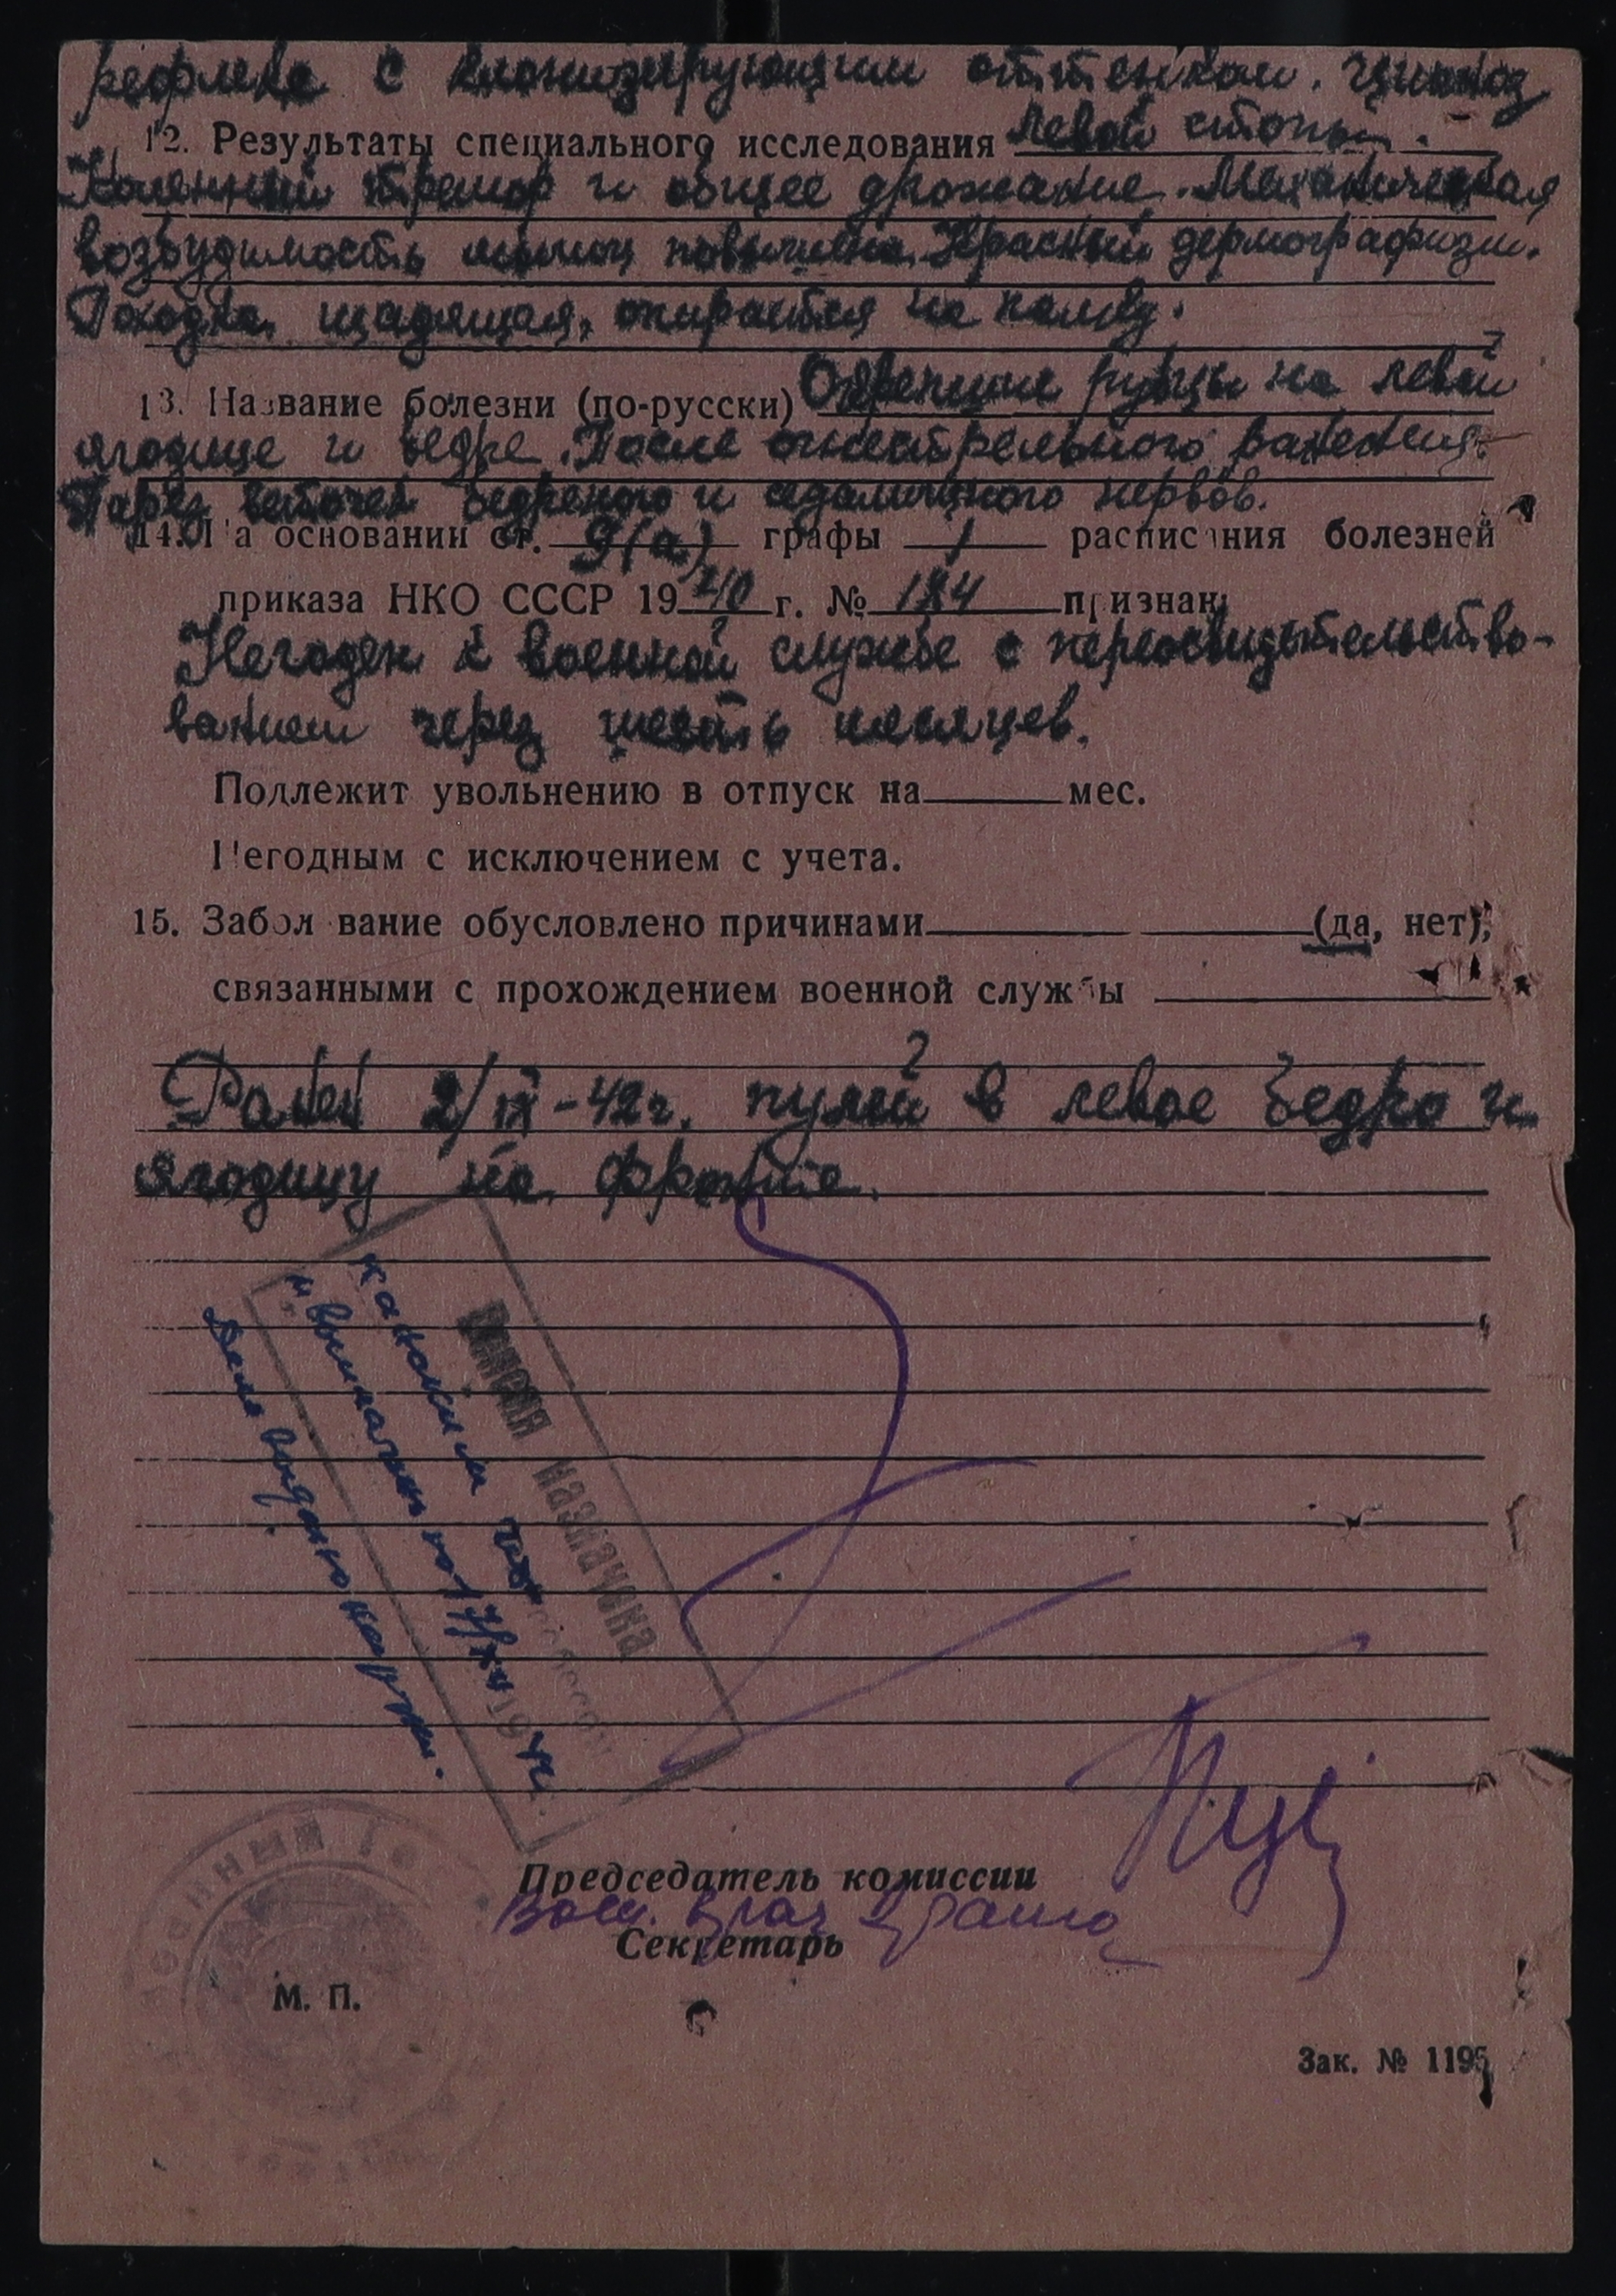 рефлекс с клонизирующим оттенком. Цианоз
12. Результаты специального исследования левой стопы.
Коленный тремор и общее дрожание. Механическая
возбудимость мышц повышена. Красный дермографизм.
Походка щадящая, опирается на палку.
13. Название болезни (по-русски) Окрепшие рубцы на левой
ягодице и бедре. После огнестрельного ранения.
Парез веточек бедренного и седалищного нервов.
14. На основании ст. 9(а) графы 1 расписания болезней
приказа НКО СССР 1940 г. № 184 признан:
Негоден к военной службе с переосвидетельство-
ванием через шесть месяцев.
Подлежит увольнению в отпуск на мес.
Негодным с исключением с учета.
15. Заболевание обусловлено причинами (да, нет),
связанными с прохождением военной службы
Ранен 2/IX-42г. пулей в левое бедро и
ягодицу на фронте.
назначена
Дело выдано на руки.
Председатель комиссии
Воен. врач 2 ранга
Секретарь
М. П.
Зак. № 1195